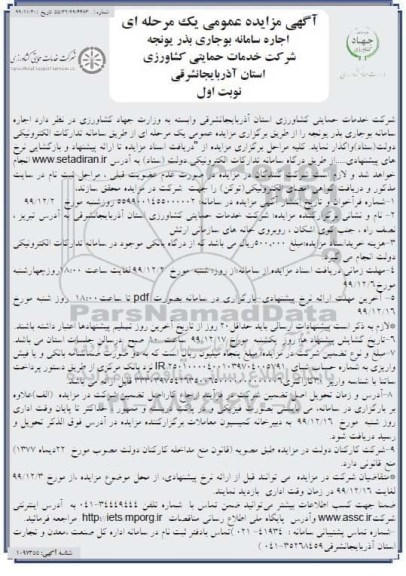 شماره: ۵۵/۳۲/۹۹/۴۴۵۳ تاریخ: ۹۹/۱۱/۳۰
آگهی مزایده عمومی یک مرحله ای
اجاره سامانه بوجاری بذر یونجه
شرکت خدمات حمایتی کشاورزی
استان آذربایجانشرقی
نوبت اول
جهاد
کشاورزی
وزارت جهاد کشاورزی
شرکت خدمات حمایتی کشاورزی
شرکت خدمات حمایتی کشاورزی استان آذربایجانشرقی وابسته به وزارت جهاد کشاورزی در نظر دارد اجاره
سامانه بوجاری بذر یونجه را از طریق برگزاری مزایده عمومی یک مرحله ای از طریق سامانه تدارکات الکترونیکی
دولت(ستاد)واگذار نماید. کلیه مراحل برگزاری مزایده از "دریافت اسناد مزایده تا ارائه پیشنهاد و بازگشایی نرخ
های پیشنهادی.....از طریق درگاه سامانه تدارکات الکترونیکی دولت (ستاد) به آدرس www.setadiran.ir انجام
خواهد شد و لازم است در صورت عدم عضویت قبلی ، مراحل ثبت نام در سایت
مذکور و دریافت گواهی امضای الکترونیکی(توکن) را جهت شرکت در مزایده محقق سازند.
۱-شماره فراخوان و تاریخ انتشار آگهی مزایده در سامانه: ۵۵۹۹۰۰۱۴۵۵۰۰۰۰۰۲ روزشنبه مورخ ۹۹/۱۲/۲
۲- نام و نشانی مزایده: شرکت خدمات حمایتی کشاورزی استان آذربایجانشرقی به آدرس تبریز ،
نصف راه ، جنب کوی اشکان ، روبروی خانه های سازمانی ارتش
۳-هزینه خریداسناد مزایده:مبلغ ۵۰۰,۰۰۰ریال می باشد که از درگاه بانکی موجود در سامانه تدارکات الکترونیکی
دولت انجام می گیرد.
۴-مهلت زمانی دریافت اسناد مزایده از سامانه:از روز شنبه مورخ ۹۹/۱۲/۲ لغایت ساعت ۱۸:۰۰روزچهارشنبه
مورخ ۹۹/۱۲/۶
۵- آخرین مهلت ارائه نرخ پیشنهادی-بارگزاری در سامانه بصورت pdf تا ساعت ۱۸:۰۰ روز شنبه مورخ
۹۹/۱۲/۱۶
*لازم به ذکر است پیشنهادات ارسالی باید حداقل ۲۰ روز از تاریخ آخرین روز تسلیم پیشنهادها اعتبار داشته باشند.
۶-تاریخ گشایش پیشنهاد ها روز یکشنبه مورخ ۹۹/۱۲/۱۷ ساعت ۱۰ صبح
۷-مبلغ و نوع تضمین شرکت در مزایده: مبلغ پنجاه میلیون ریال است که به دو صورت ضمانتنامه بانکی و یا فیش
واریزی به شماره حساب شبای
۸-آدرس و زمان تحویل اصل تضمین شرکت در مزایده
روز شنبه مورخ ۹۹/۱۲/۱۶ به دبیرخانه کمیسیون معاملات برگزارکننده مزایده در آدرس فوق الذکر تحویل و
رسید دریافت شود.
۹-شرکت کارکنان دولت در مزایده طبق مصوبه (قانون منع مداخله کارکنان دولت مصوب مورخ ۲۲دیماه ۱۳۷۷)
منع قانونی دارد.
*متقاضیان شرکت در مزایده می توانند قبل از ارائه نرخ پیشنهادی، از محل موضوع مزایده ،از مورخ ۹۹/۱۲/۳
لغایت ۹۹/۱۲/۱۶ در زمان وقت اداری بازدید نمایند.
ضمنا جهت کسب اطلاعات بیشتر می‌توانید ضمن تماس با شماره تلفن ۳۴۴۴۹۴۴۴-۰۴۱ به آدرس اینترنتی
شرکت www.assc.ir وآدرس پایگاه ملی اطلاع رسانی مناقصات http://iets.mporg.ir مراجعه فرمائید.
-شماره تماس پشتیبانی سامانه : ۴۱۹۳۴ -۰۲۱(تماس بادفتر ثبت نام در سامانه اداره کل صنعت ،معدن و تجارت
استان آذربایجانشرقی۳۵۲۶۸۴۵۹-۰۴۱)
شناسه آگهی: ۱۰۹۷۳۵۵
ParsNamadData
پایگاه اطلاع رسانی مناقصه و مزایده
۰۲۱-۸۸۳۴۹۶۷۰-۵